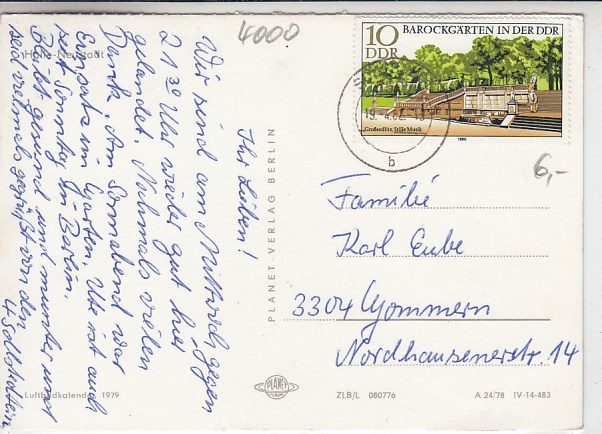 4000
BAROCKGÄRTEN IN DER DDR
10
DDR
Großsedlitz, Stille Musik
1980
b
6,-
Halle-Neustadt
Ihr Lieben!
Wir sind am Mittwoch gegen
21 30 Uhr wieder gut hier
gelandet. Nochmals vielen
Dank. Am Sonnabend war
im Garten. Ute ist auch
seit Sonntag in Berlin.
Bleibt gesund und munter und
seid vielmals gegrüßt von den
4
Luftbildkalender 1979
PLANET-VERLAG BERLIN
PLANET
Familie
Karl Eube
3304 Gommern
Nordhausenerstr. 14
ZLB/L 080776
A 24/78 IV-14-483